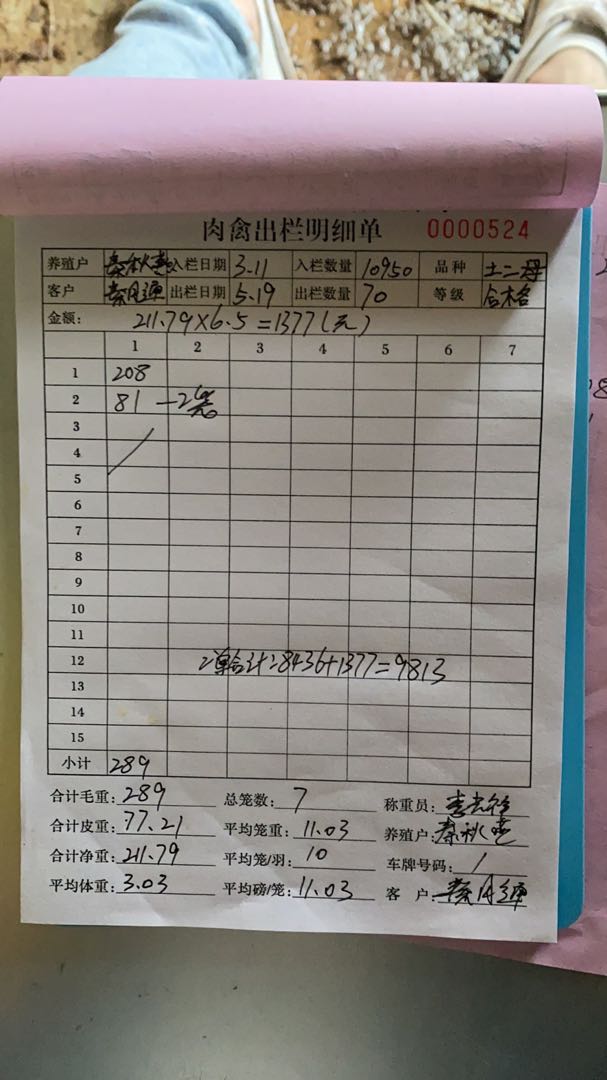 肉禽出栏明细单 0000524
养殖户 秦秋莲 入栏日期 3.11 入栏数量 10950 品种 土二母
客户 出栏日期 5.19 出栏数量 70 等级 合格
金额: 211.79×6.5=1377(元)
1 2 3 4 5 6 7
1 208
2 81
3
4
5
6
7
8
9
10
11
12 2单合计:8436+1377=9813
13
14
15
小计 289
合计毛重: 289 总笼数: 7 称重员:
合计皮重: 77.21 平均笼重: 11.03 养殖户:
合计净重: 211.79 平均笼/羽: 10 车牌号码: /
平均体重: 3.03 平均磅/笼: 11.03 客 户: